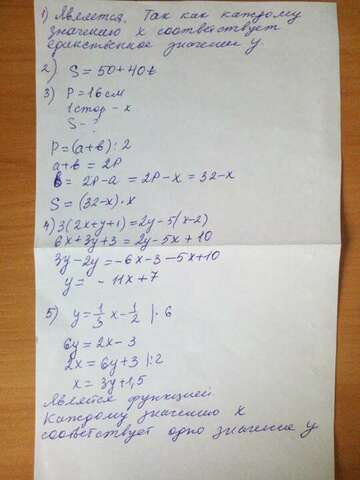 1) Является. Так как каждому
значению x соответствует
единственное значении y
2) S = 50 + 40t
3) P = 16 см
1 стор - x
S - ?
P = (a+b) : 2
a+b = 2P
b = 2P-a = 2P-x = 32-x
S = (32-x)·x
4) 3(2x+y+1)=2y-5(x-2)
6x+3y+3 = 2y-5x+10
3y-2y = -6x-3-5x+10
y = -11x+7
5) y = 1/3 x - 1/2 |· 6
6y = 2x-3
2x = 6y+3 |:2
x = 3y+1,5
Является функцией
Каждому значению x
соответствует одно значение y